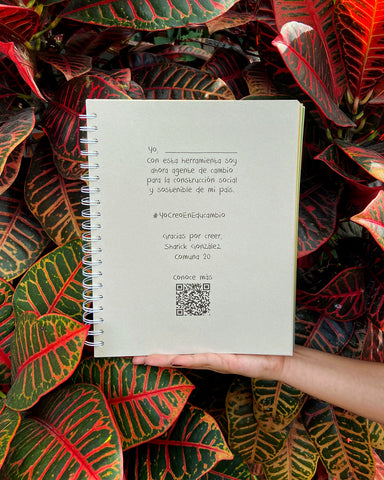 Yo, ____________________
con esta herramienta soy
ahora agente de cambio
para la construcción social
y sostenible de mi país.
#YoCreoEnEducambio
Gracias por creer,
Sharick González
Comuna 20
Conoce más